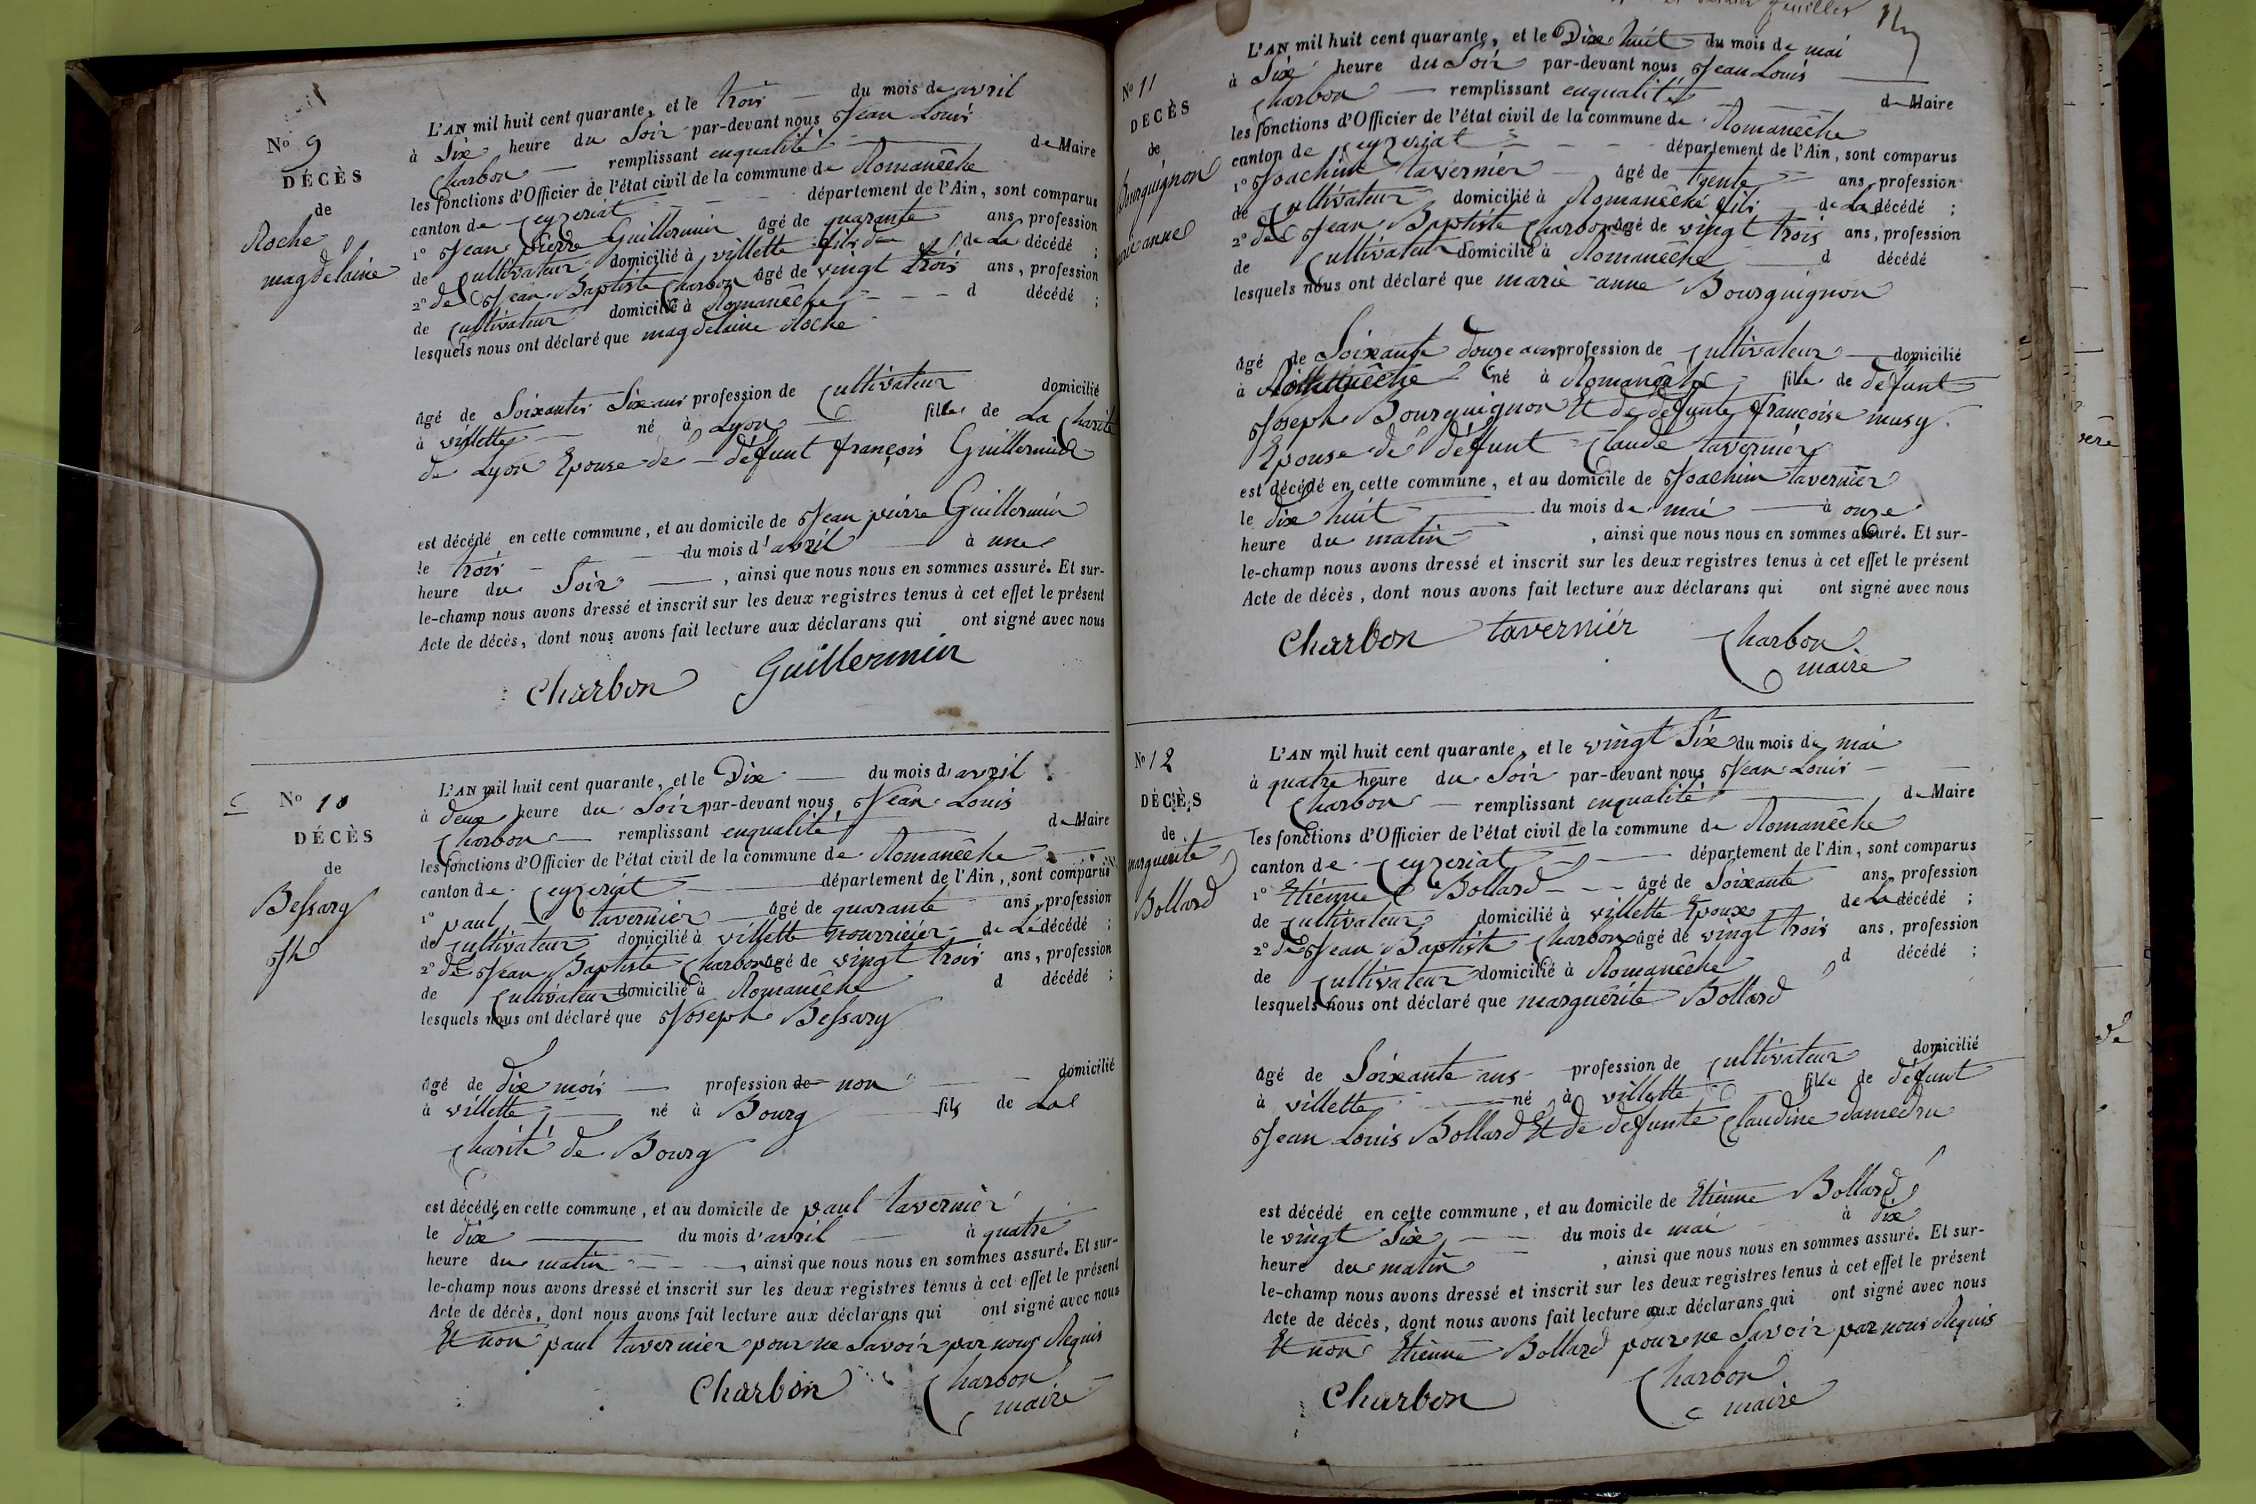 No 9
DÉCÈS
de
Roche
magdelaine
L'AN mil huit cent quarante, et le trois du mois de avril
à Six heure du Soir par-devant nous Jean Louis
Charbon remplissant enqualité de Maire
les fonctions d'Officier de l'état civil de la commune de Romanêche
canton de Ceyzeriat département de l'Ain, sont comparus
1° Jean Pierre Guillermin âgé de quarante ans, profession
de Cultivateur domicilié à villette fils de de La décédé ;
2° de Jean Baptiste Charbon âgé de vingt trois ans, profession
de Cultivateur domicilié à Romanêche d décédé ;
lesquels nous ont déclaré que magdelaine Roche
âgé de Soixantes Six ans profession de Cultivateur domicilié
à villette né à Lyon fille de La Charité
de Lyon Epouse de défunt françois Guillermin
est décédé en cette commune, et au domicile de Jean pierre Guillermin
le trois du mois d'avril à une
heure du Soir, ainsi que nous nous en sommes assuré. Et sur-
le-champ nous avons dressé et inscrit sur les deux registres tenus à cet effet le présent
Acte de décès, dont nous avons fait lecture aux déclarans qui ont signé avec nous
Charbon Guillermin
No 10
DÉCÈS
de
Bessary
Jh
L'AN mil huit cent quarante, et le Dix du mois d'avril
à deux heure du Soir par-devant nous Jean Louis
Charbon remplissant enqualité de Maire
les fonctions d'Officier de l'état civil de la commune de Romanêche
canton de Ceyzeriat département de l'Ain, sont comparus
1° paul tavernier âgé de quarante ans, profession
de Cultivateur domicilié à villette nourricier de Le décédé ;
2° de Jean Baptiste Charbon âgé de vingt trois ans, profession
de Cultivateur domicilié à Romanêche d décédé ;
lesquels nous ont déclaré que Joseph Bessary
âgé de dix mois profession de non domicilié
à villette né à Bourg fils de La
Charité de Bourg
est décédé en cette commune, et au domicile de paul tavernier
le dix du mois d'avril à quatre
heure du matin, ainsi que nous nous en sommes assuré. Et sur-
le-champ nous avons dressé et inscrit sur les deux registres tenus à cet effet le présent
Acte de décès, dont nous avons fait lecture aux déclarans qui ont signé avec nous
Et non paul tavernier pour ne Savoir par nous Requis
Charbon Charbon
maire
feuillet
No 11
DÉCÈS
de
Bourguignon
marie anne
L'AN mil huit cent quarante, et le Dix huit du mois de mai
à Six heure du Soir par-devant nous Jean Louis
Charbon remplissant enqualité de Maire
les fonctions d'Officier de l'état civil de la commune de Romanêche
canton de Ceyzeriat département de l'Ain, sont comparus
1° Joachim tavernier âgé de trente ans, profession
de Cultivateur domicilié à Romanêche fils de La décédé ;
2° de Jean Baptiste Charbon âgé de vingt trois ans, profession
de Cultivateur domicilié à Romanêche d décédé
lesquels nous ont déclaré que marie anne Bourguignon
âgé de Soixante douze ans profession de Cultivateur domicilié
à Romanêche né à Romanêche fille de défunt
Joseph Bourguignon Et de défunte françoise musy
Epouse de défunt Claude tavernier
est décédé en cette commune, et au domicile de Joachim tavernier
le dix huit du mois de mai à onze
heure du matin, ainsi que nous nous en sommes assuré. Et sur-
le-champ nous avons dressé et inscrit sur les deux registres tenus à cet effet le présent
Acte de décès, dont nous avons fait lecture aux déclarans qui ont signé avec nous
Charbon tavernier Charbon
maire
No 12
DÉCÈS
de
marguerite
Bollard
L'AN mil huit cent quarante, et le vingt Six du mois de mai
à quatre heure du Soir par-devant nous Jean Louis
Charbon remplissant enqualité de Maire
les fonctions d'Officier de l'état civil de la commune de Romanêche
canton de Ceyzeriat département de l'Ain, sont comparus
1° Etienne Bollard âgé de Soixante ans, profession
de Cultivateur domicilié à villette Epoux de La décédé ;
2° de Jean Baptiste Charbon âgé de vingt trois ans, profession
de Cultivateur domicilié à Romanêche d décédé ;
lesquels nous ont déclaré que marguérite Bollard
âgé de Soixante ans profession de Cultivateur domicilié
à villette né à villette fille de défunt
Jean Louis Bollard Et de défunte Claudine damedru
est décédé en cette commune, et au domicile de Etienne Bollard
le vingt Six du mois de mai à dix
heure du matin, ainsi que nous nous en sommes assuré. Et sur-
le-champ nous avons dressé et inscrit sur les deux registres tenus à cet effet le présent
Acte de décès, dont nous avons fait lecture aux déclarans qui ont signé avec nous
Et non Etienne Bollard pour ne Savoir par nous Requis
Charbon Charbon
maire